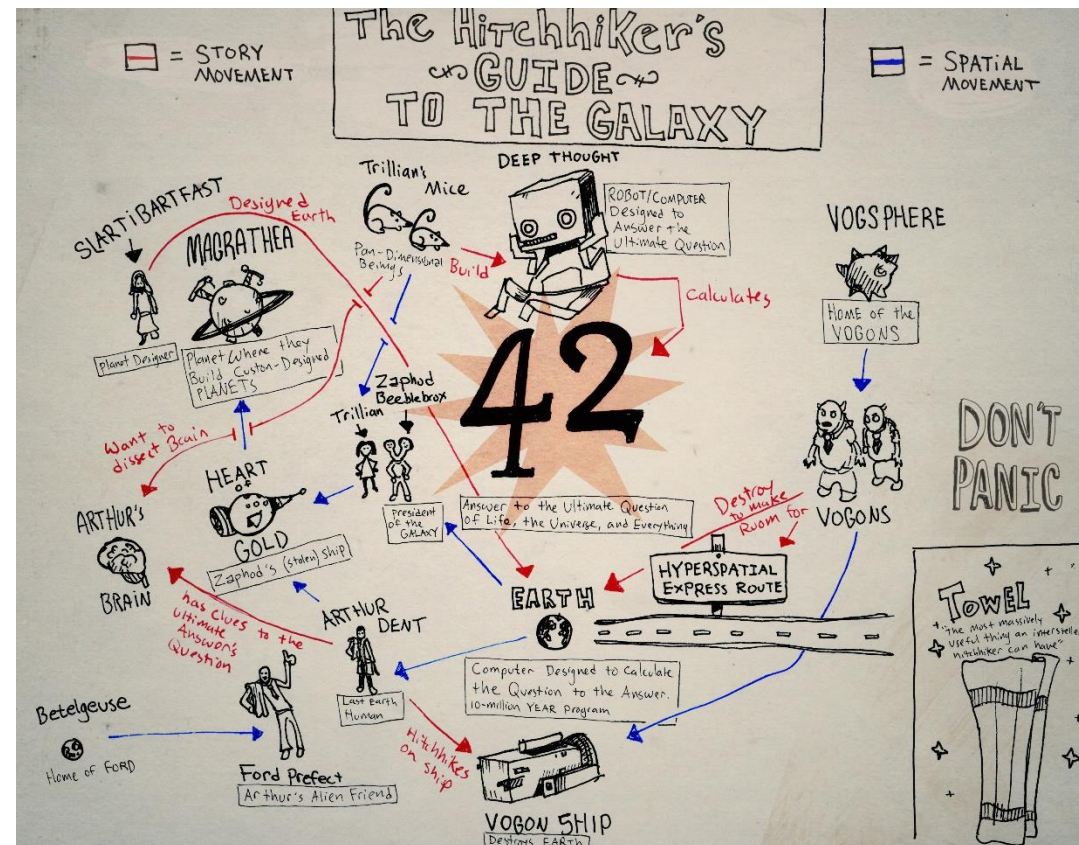 The Hitchhiker's
GUIDE
TO THE GALAXY
= STORY
MOVEMENT
= SPATIAL
MOVEMENT
SLARTiBARTFAST
Planet Designer
Designed
Earth
MAGRATHEA
Planet Where they
Build Custom-Designed
PLANETS
Trillian's
Mice
Pan-Dimensional
Beings
Build
DEEP THOUGHT
ROBOT/COMPUTER
Designed to
Answer the
Ultimate Question
Calculates
42
Answer to the Ultimate Question
of Life, the Universe, and Everything
VOGSPHERE
HOME of the
VOGONS
VOGONS
DON'T
PANIC
Destroy
to make
Room for
HYPERSPATIAL
EXPRESS ROUTE
Zaphod
Beeblebrox
Trillian
President
of the
GALAXY
Want to
dissect Brain
HEART
of
GOLD
Zaphod's (stolen) ship
ARTHUR'S
BRAIN
has clues to the
ultimate
Answer's
Question
ARTHUR
DENT
Last Earth
Human
EARTH
Computer Designed to Calculate
the Question to the Answer.
10-million YEAR program
Betelgeuse
Home of FORD
Ford Prefect
Arthur's Alien Friend
Hitchhikes
on ship
VOGON SHIP
Destroys EARTH
TOWEL
"the most massively
useful thing an interstella
hitchhiker can have"